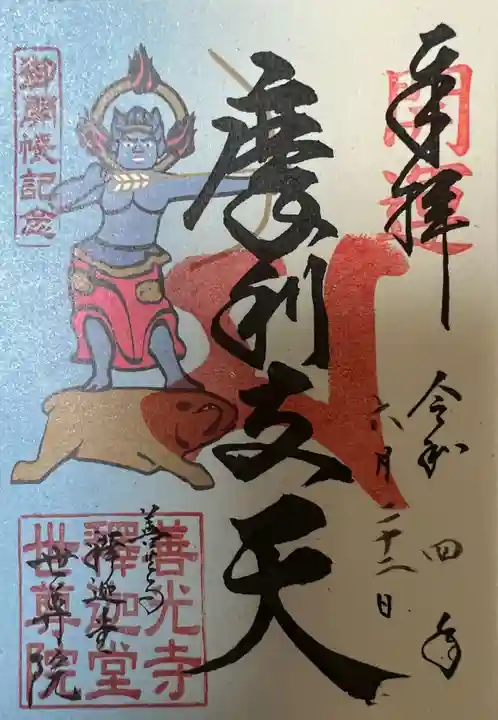 開運
奉拝
令和四年
六月
摩利支天
御開帳記念
善光寺
釋迦堂
世尊院
善光寺
釋迦堂
世尊院